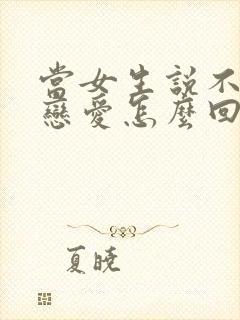 當女生說不
戀愛怎麼回
夏曉